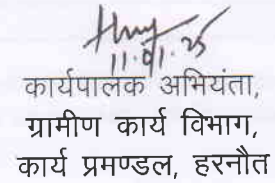 11.01.25
कार्यपालक अभियंता,
ग्रामीण कार्य विभाग,
कार्य प्रमण्डल, हरनौत